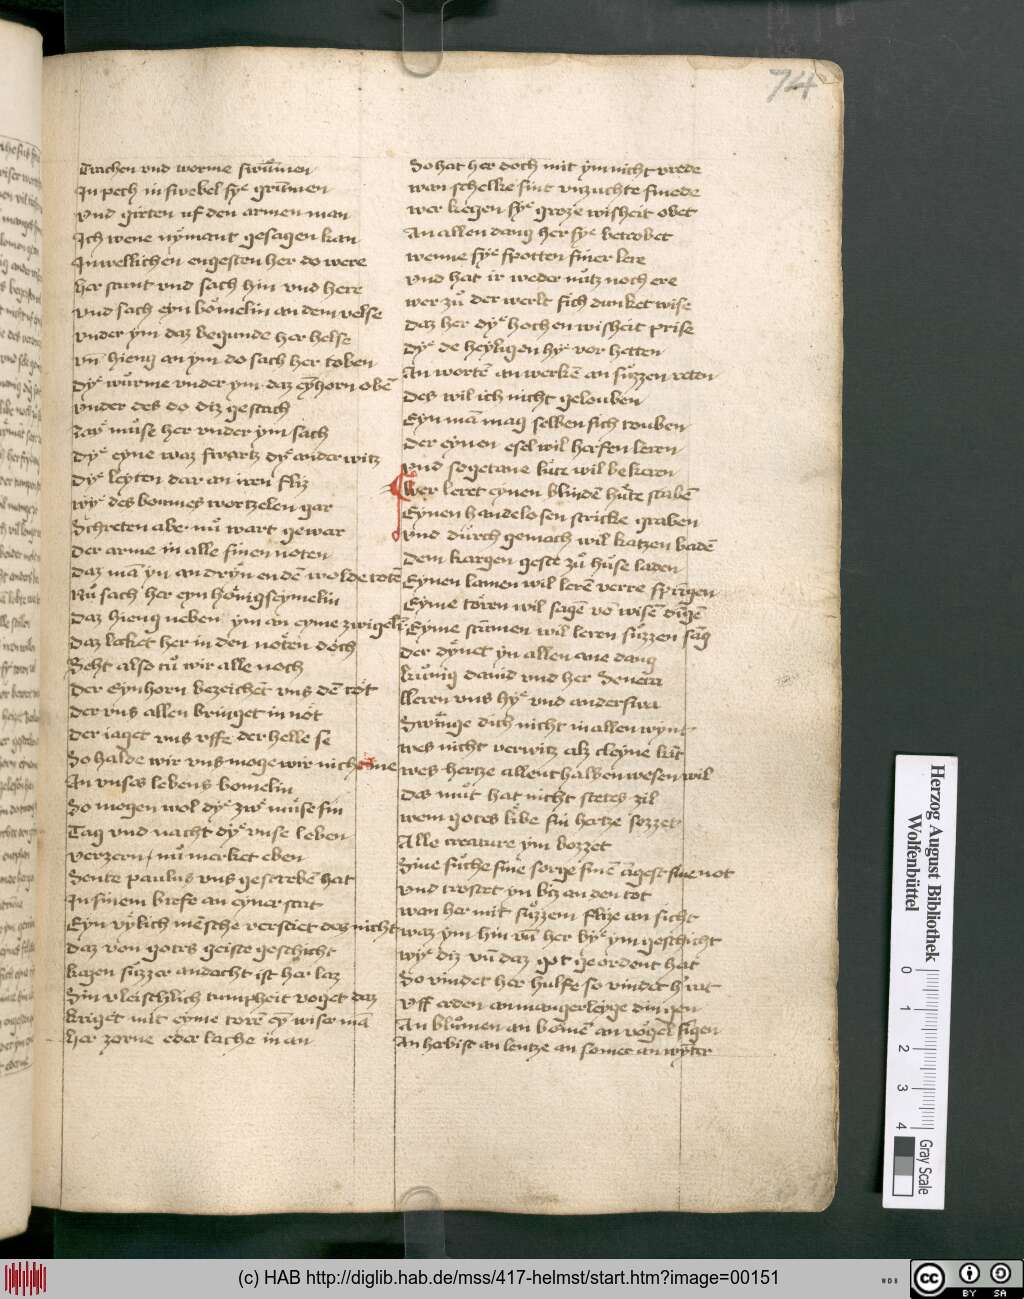 74
Trachen vnd worme swūmen
In pech in swebel sye grūmen
Vnd girten uf den armen man
Ich wene nymant gesagen kan
In wellichen engesten her do were
her stunt vnd sach hin vnd here
vnd sach eyn bömelin an dem velse
vnder ym daz begunde her helse
vn̄ hieng an ym do sach her toben
dye würme vnder ym daz eynhorn obē
vnder des do diz gestach
zwe müse her vnder ym sach
dye eyne waz swartz dye ander witz
dye leyten dar an iren fliz
wye des boumes wortzelen gar
Schreten abe nu wart gewar
der arme in alle sinen noten
daz mā yn an dryn endē wolde totē
Nu sach her eyn hönigseymelin
daz hieng neben ym an eyme zwigelī
daz lecket her in den nöten doch
Seht also tū wir alle noch
der Eynhorn bezeichēt vns dē tot
der vns allen bringet in nöt
der iaget vns vffe der helle se
So halde wir vns moge wir nicht me
An vnses lebens bomelin
So mogen wol dye zwe müse sin
Tag vnd nacht dye vnse leben
verzern nu merket eben
Sente paulus vns gescrebē hat
In sinem briefe an eyner stat
Eyn vylich mēsche versteet des nicht
daz von gotes geiste geschicht
kegen süzzer andacht ist her laz
Sin vleischlich tumpheit voget daz
krieget mit eyme torē ey wiser mā
her zorne eder lache in an
So hat her doch mit ym nicht vrede
wan schelke sint vnzuchte smede
wer kegen sye groze wisheit obet
An allen dang her sye betrobet
wenne sye spotten siner lere
vnd hat ir weder nütz noch ere
wer zu der werlt sich dunket wise
daz her dye hochen wisheit prise
dye de heyligen hye vor hetten
An wortē an werkē an süzzen reten
des wil ich nicht gelouben
Eyn mā mag selben sich touben
der eynen esel wil herfen leren
vnd sogetane lüte wil bekeren
Wer leret eynen blindē hüte stabē
Eynen handelosen stricke graben
vnd durch gemach wil katzen badē
dem kargen geste zu huse laden
Eynen lamen wil lerē verre springen
Eyme tören wil sagē vō wisē dingē
Eyme stūmen wil leren süzzen sāg
der dynet yn allen ane dang
künig dauid vnd her Seneca
lleren vns hye vnd anderswa
Swinge dich nicht in allen wynt
wes nicht verwitz alz cleyne kint
wes hertze allenthalben wesen wil
des müt hat nicht stetes zil
wem gotes libe sin hertze sezzet
Alle creature ym bozzet
Sine suche sine sorge sinē āgest sine not
vnd trostet yn biz an den tot
wan her mit süzzem flize an sicht
waz ym hin vn̄ her bye ym geschicht
wye diz vn̄ daz got geordent hat
So vindet her hulfe so vindet h' rat
vff erden an mangerleyge dingen
An blumen an bömē an vögel singen
An herbist an lentze an somer an wynter
Herzog August Bibliothek
Wolfenbüttel
0 1 2 3 4
Gray Scale
(c) HAB http://diglib.hab.de/mss/417-helmst/start.htm?image=00151
WDB
cc
BY SA